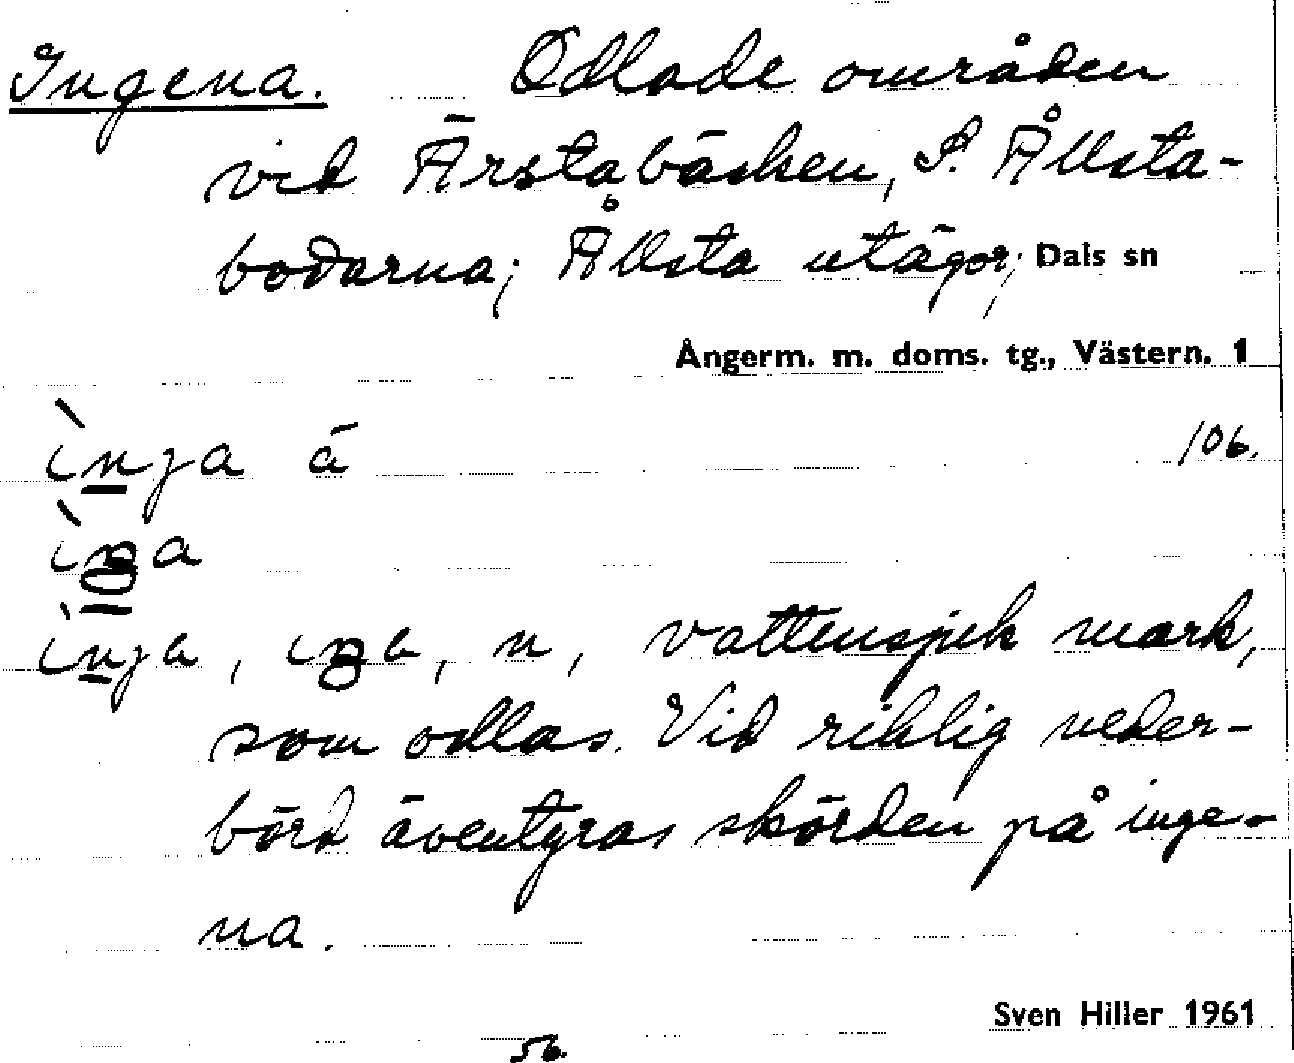 Ingena. Odlade områden
vid Ärstabäcken, S. Ållsta-
bodarna; Ållsta utägor; Dals sn
Ångerm. m. doms. tg., Västern. 1
ìnja ä 106.
ìna
ìnja, ina, n, vattensjuk mark,
som odlas. Vid riklig neder-
börd äventyras skörden på inge-
na.
Sven Hiller 1961
56.